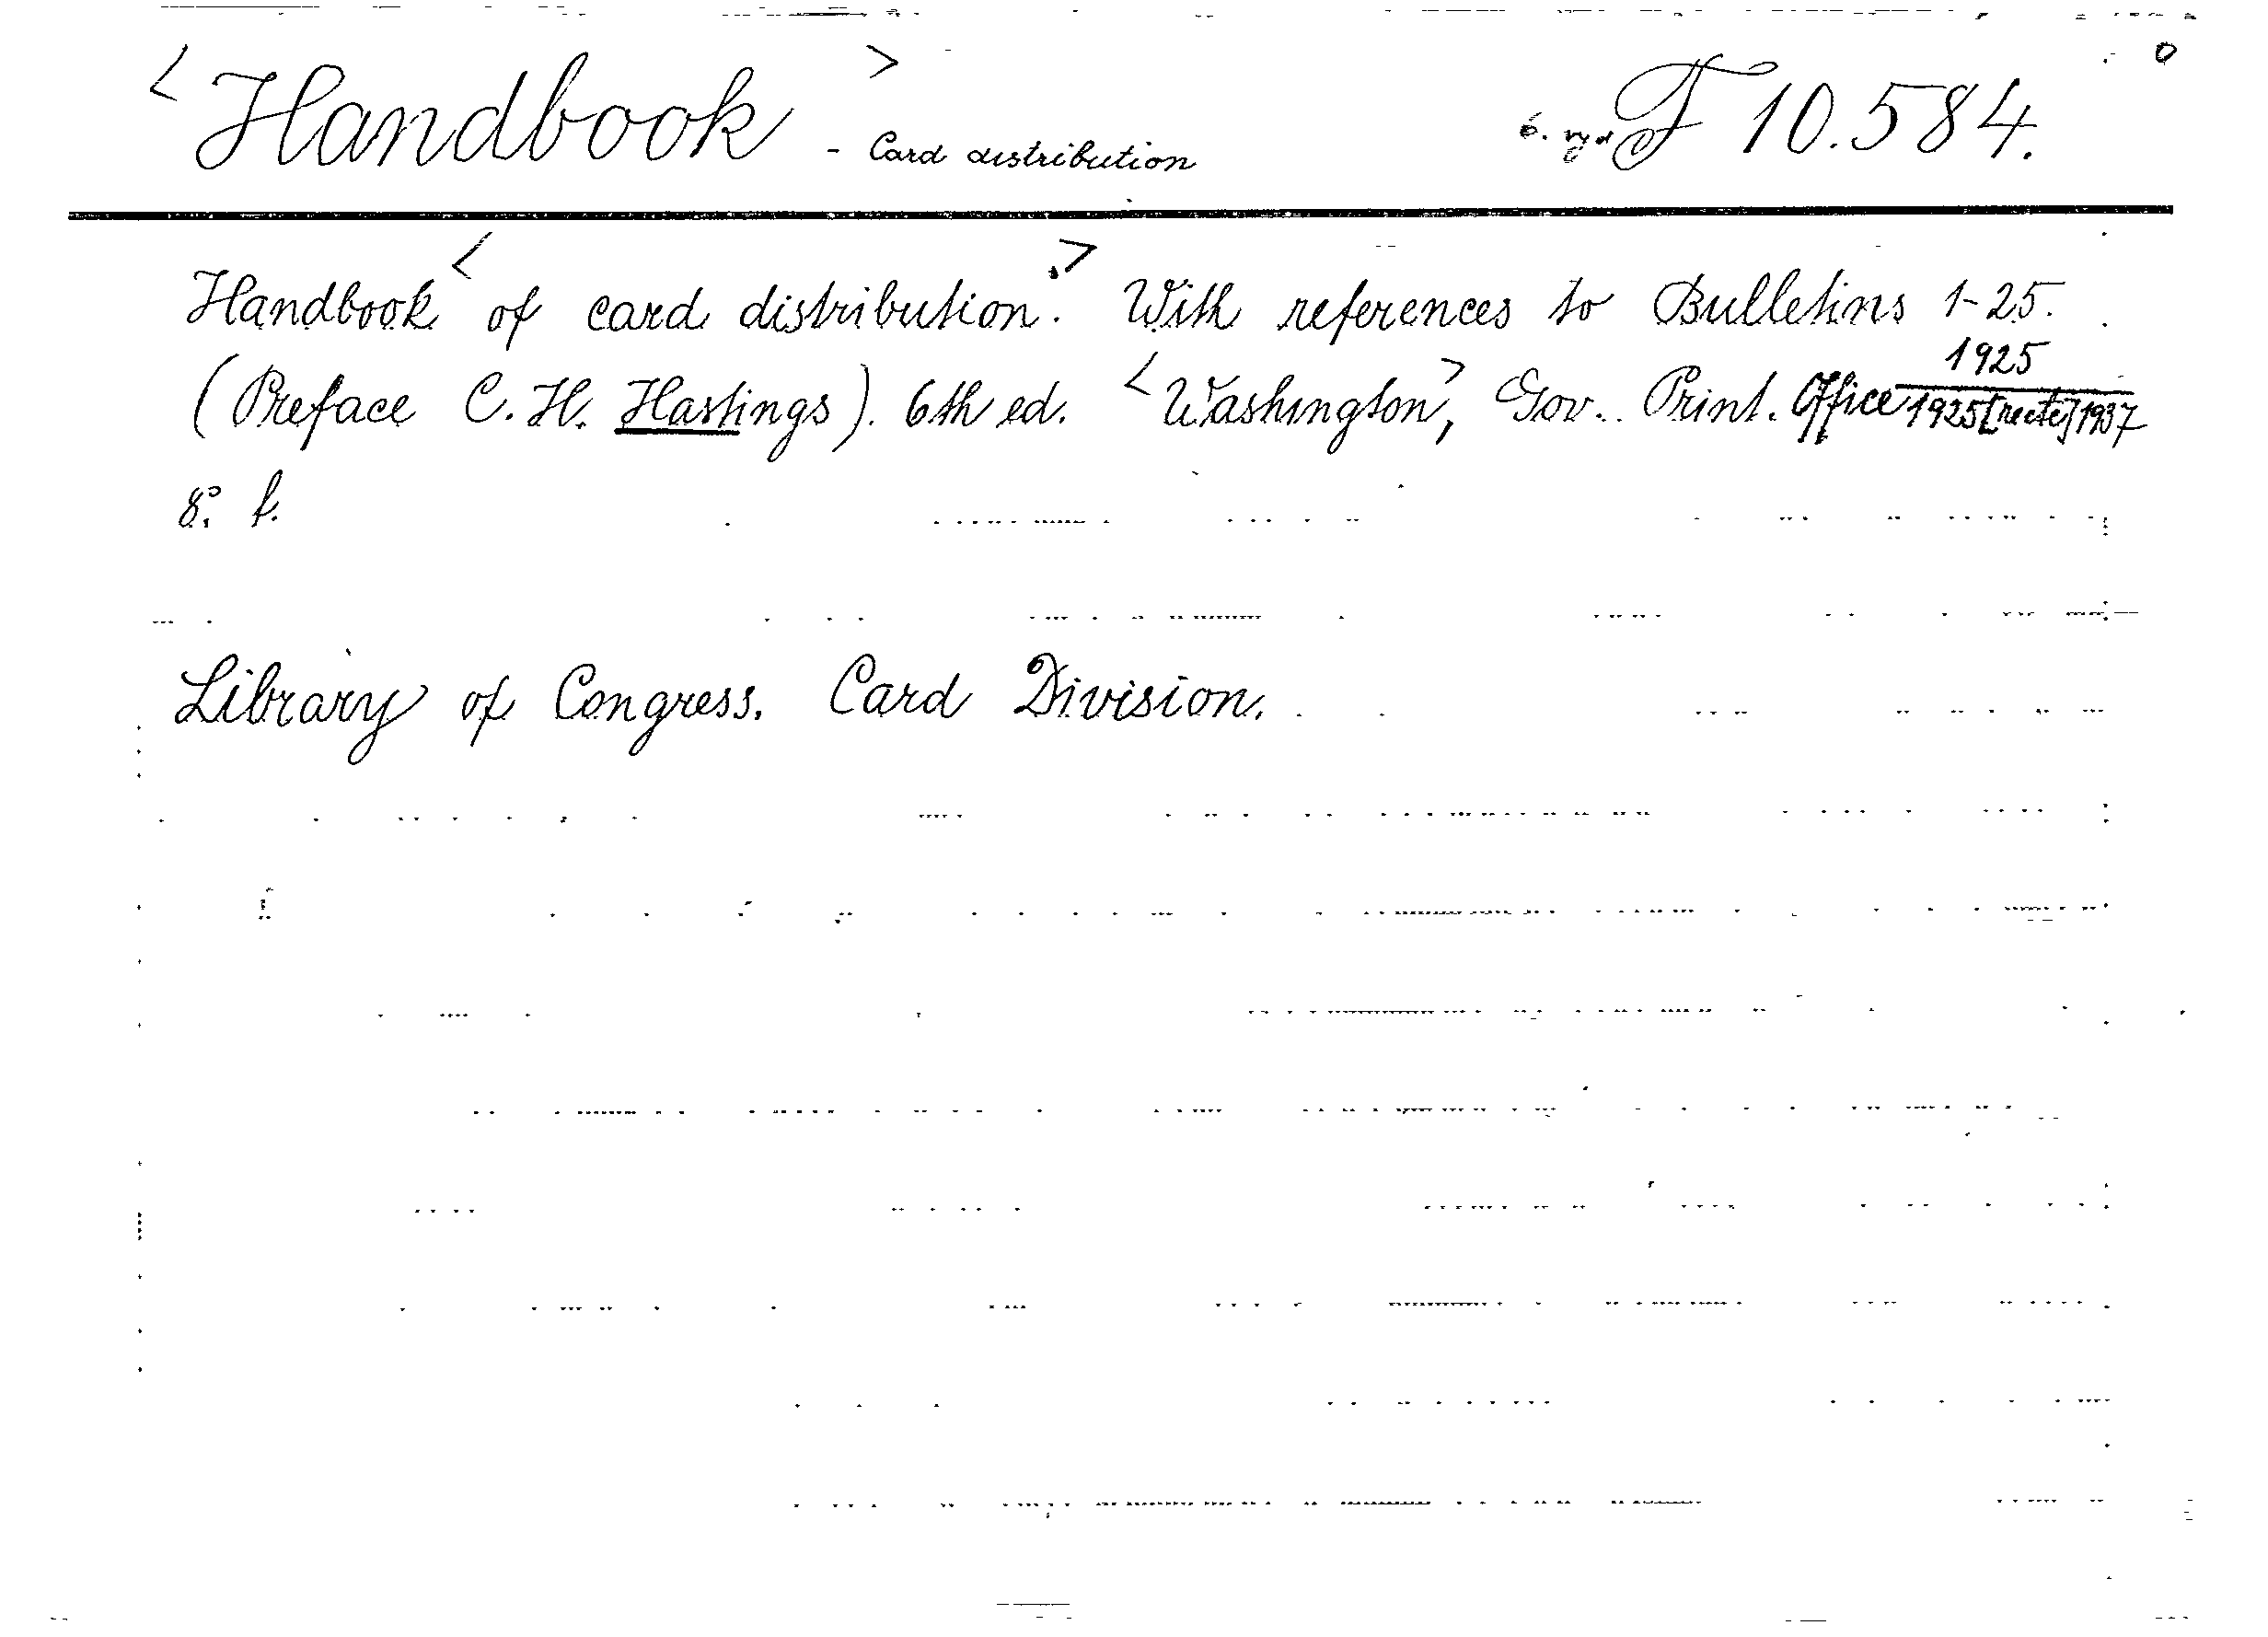 <Handbook> - Card distribution F 10.584.
Handbook <of card distribution.> With references to Bulletins 1-25.
(Preface C. H. Hastings). 6th ed. <Washington>, Gov. Print. Office 1925
1925 [recte] 1937
8°. f.
Library of Congress. Card Division.